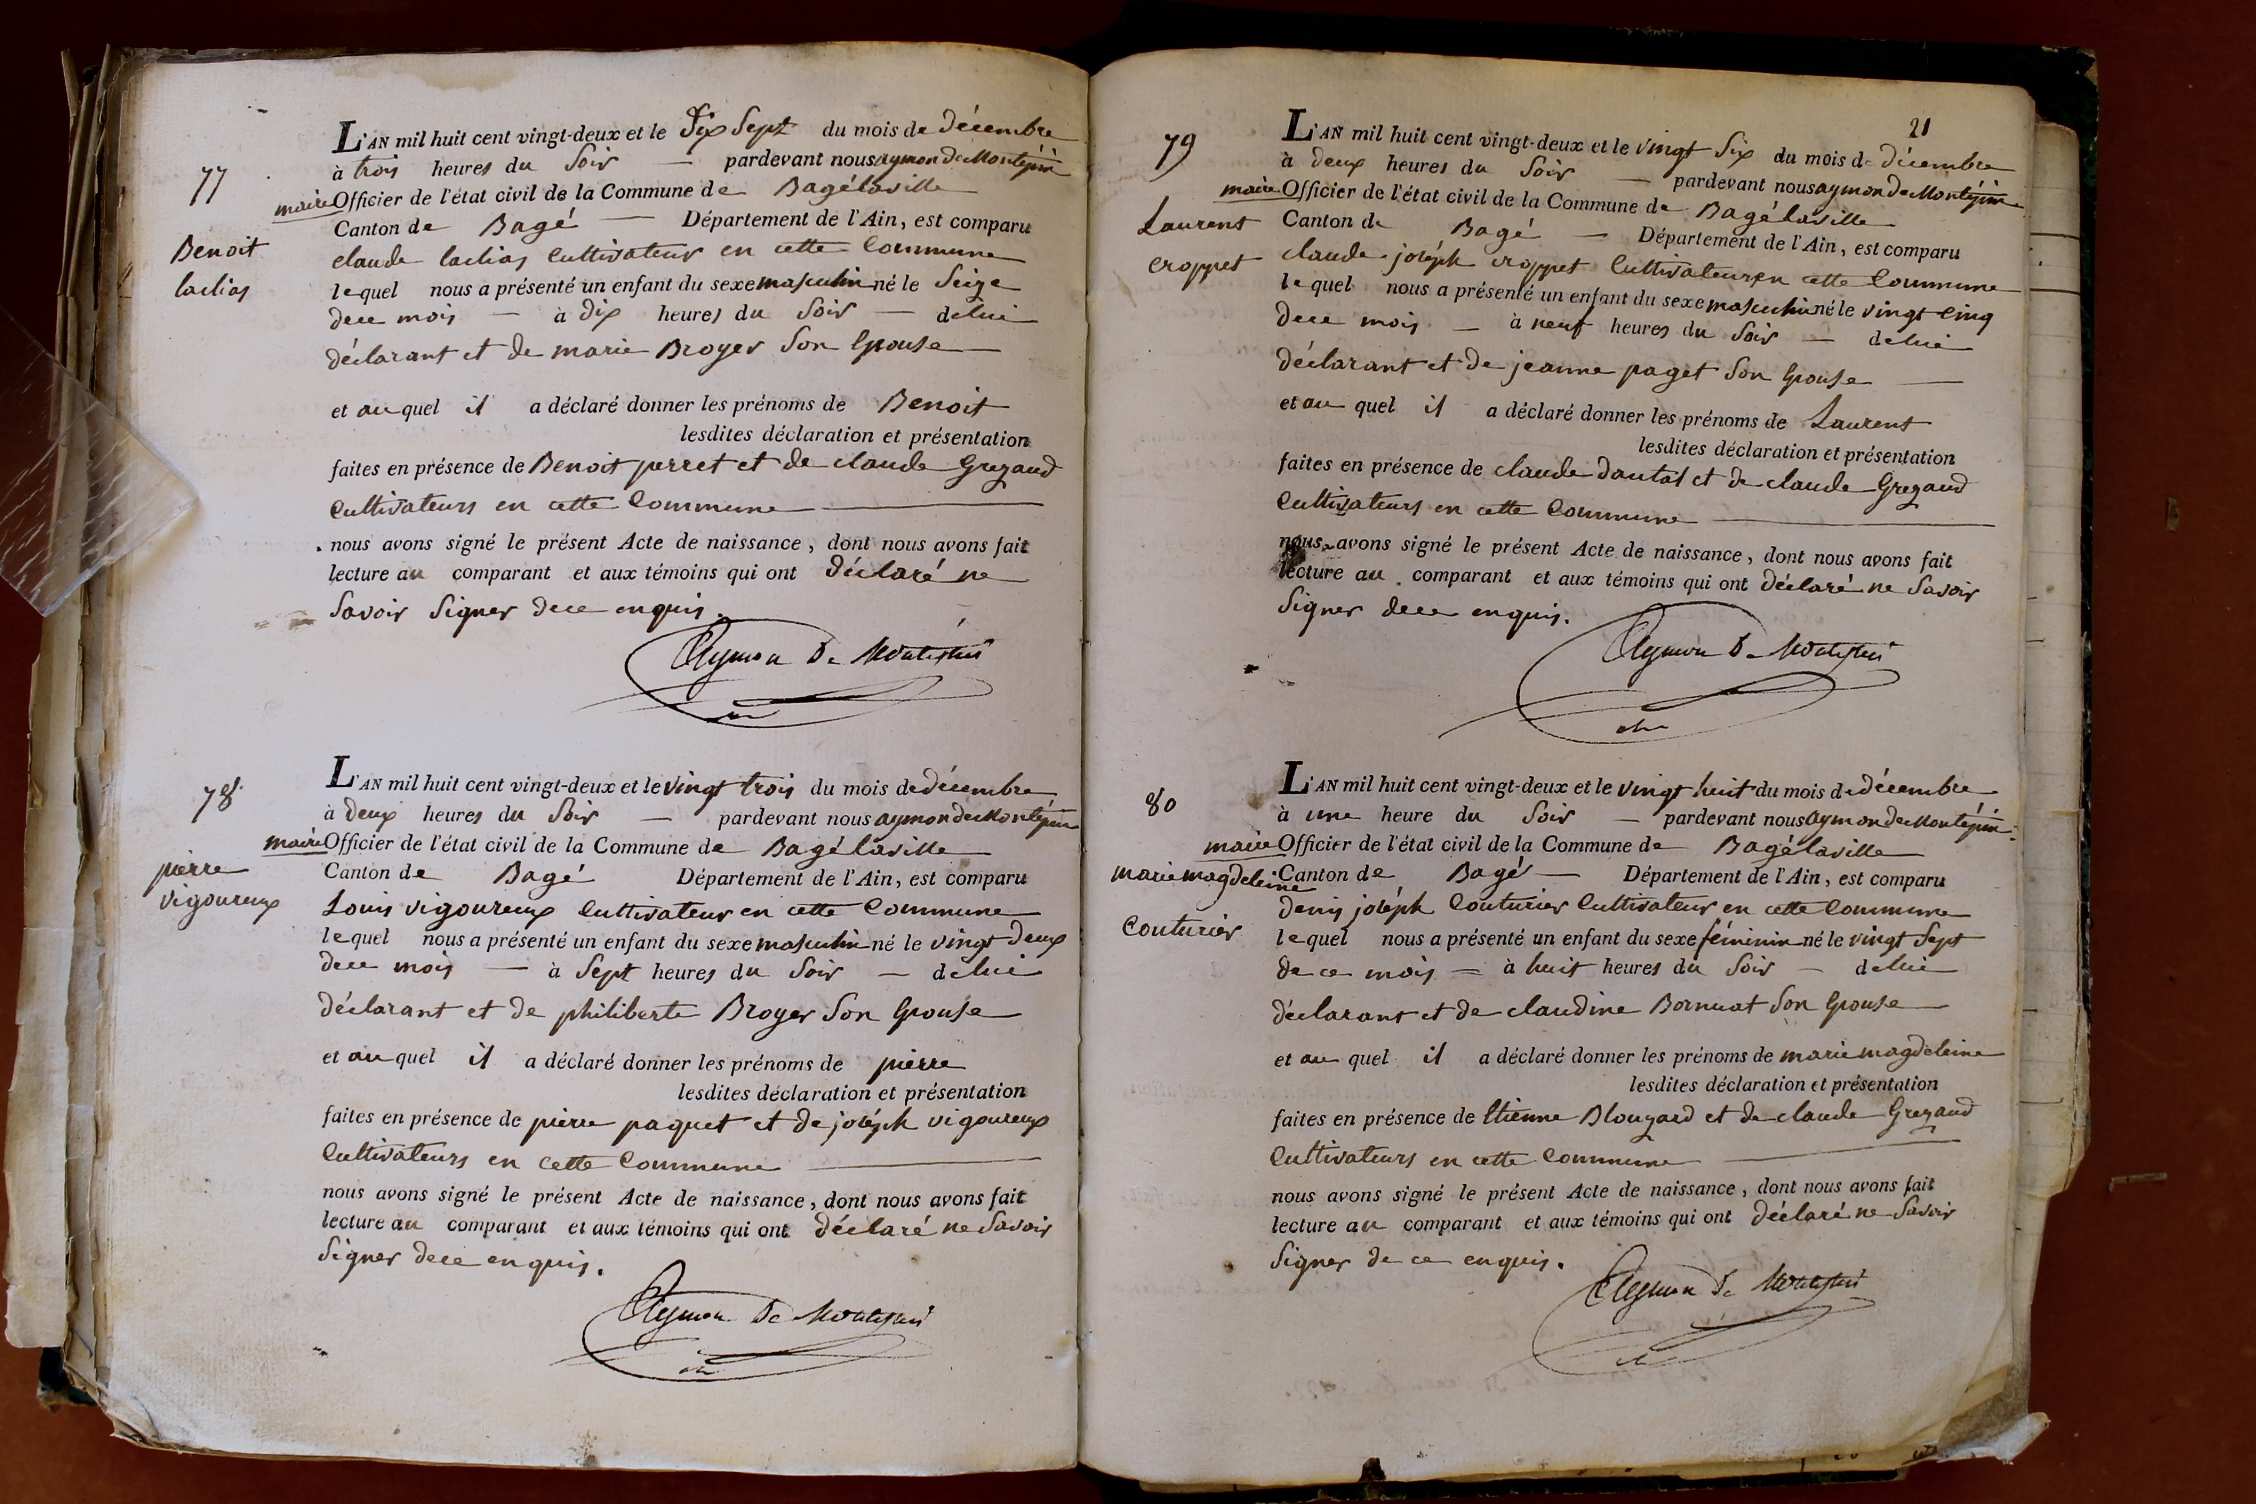 77
Benoit
laclias
L'AN mil huit cent vingt-deux et le Dix Sept du mois de décembre
à trois heures du Soir — pardevant nous aymon de Montépin
maire Officier de l'état civil de la Commune de Bagélaville
Canton de Bagé — Département de l'Ain, est comparu
claude laclias Cultivateur en cette Commune
lequel nous a présenté un enfant du sexe masculin né le Seize
dece mois — à Dix heures du Soir — delui
déclarant et de marie Broyer Son Epouse
et au quel il a déclaré donner les prénoms de Benoit
lesdites déclaration et présentation
faites en présence de Benoit perret et de claude Gregaud
Cultivateurs en cette Commune
nous avons signé le présent Acte de naissance, dont nous avons fait
lecture au comparant et aux témoins qui ont déclaré ne
Savoir Signer dece enquis.
Aymon De Montepin
78
pierre
vigoureux
L'AN mil huit cent vingt-deux et le vingt trois du mois de décembre
à deux heures du Soir — pardevant nous aymon de Montépin
maire Officier de l'état civil de la Commune de Bagélaville
Canton de Bagé Département de l'Ain, est comparu
Louis vigoureux Cultivateur en cette Commune
lequel nous a présenté un enfant du sexe masculin né le vingt deux
dece mois — à Sept heures du Soir — delui
déclarant et de philiberte Broyer Son Epouse
et au quel il a déclaré donner les prénoms de pierre
lesdites déclaration et présentation
faites en présence de pierre paquet et de joséph vigoureux
Cultivateurs en cette Commune
nous avons signé le présent Acte de naissance, dont nous avons fait
lecture au comparant et aux témoins qui ont déclaré ne Savoir
Signer dece enquis.
Aymon De Montepin
21
79
Laurent
croppet
L'AN mil huit cent vingt-deux et le vingt Six du mois de décembre
à deux heures du Soir — pardevant nous aymon de Montépin
maire Officier de l'état civil de la Commune de Bagélaville
Canton de Bagé — Département de l'Ain, est comparu
claude joséph croppet Cultivateur en cette Commune
lequel nous a présenté un enfant du sexe masculin né le vingt Cinq
dece mois — à neuf heures du Soir — delui
déclarant et de jeanne paget Son Epouse
et au quel il a déclaré donner les prénoms de Laurent
lesdites déclaration et présentation
faites en présence de claude dautal et de claude Gregaud
Cultivateurs en cette Commune
nous avons signé le présent Acte de naissance, dont nous avons fait
lecture au comparant et aux témoins qui ont déclaré ne Savoir
Signer dece enquis.
Aymon De Montepin
80
marie magdeleine
Couturier
L'AN mil huit cent vingt-deux et le vingt huit du mois de décembre
à une heure du Soir — pardevant nous aymon de Montépin
maire Officier de l'état civil de la Commune de Bagélaville
Canton de Bagé — Département de l'Ain, est comparu
denis joséph Couturier Cultivateur en cette Commune
lequel nous a présenté un enfant du sexe féminin né le vingt Sept
de ce mois — à huit heures du Soir — delui
déclarant et de claudine Bornuat Son Epouse
et au quel il a déclaré donner les prénoms de marie magdeleine
lesdites déclaration et présentation
faites en présence de Etienne Blougard et de claude Gregaud
Cultivateurs en cette Commune
nous avons signé le présent Acte de naissance, dont nous avons fait
lecture au comparant et aux témoins qui ont déclaré ne Savoir
Signer de ce enquis.
Aymon De Montepin